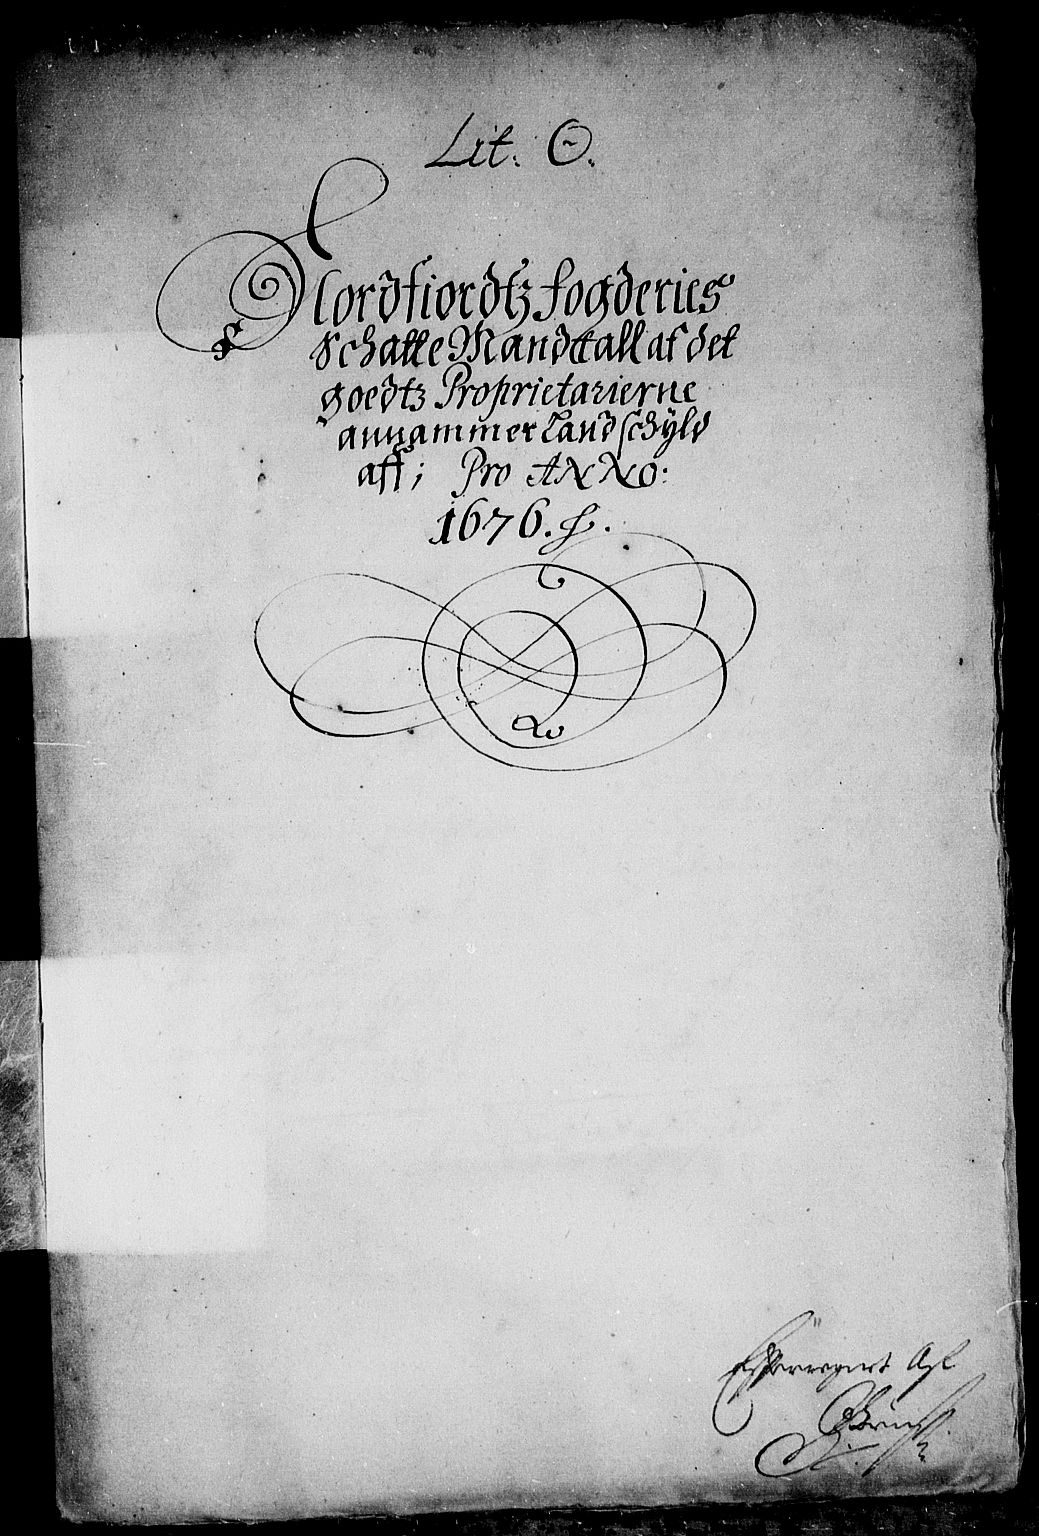 Lit: O.
Nordfiordtz fogderies
Schatte Mandttall af det
goedtz Proprietarierne
annammer Landschÿld
aff; Pro ANNO:
1676.